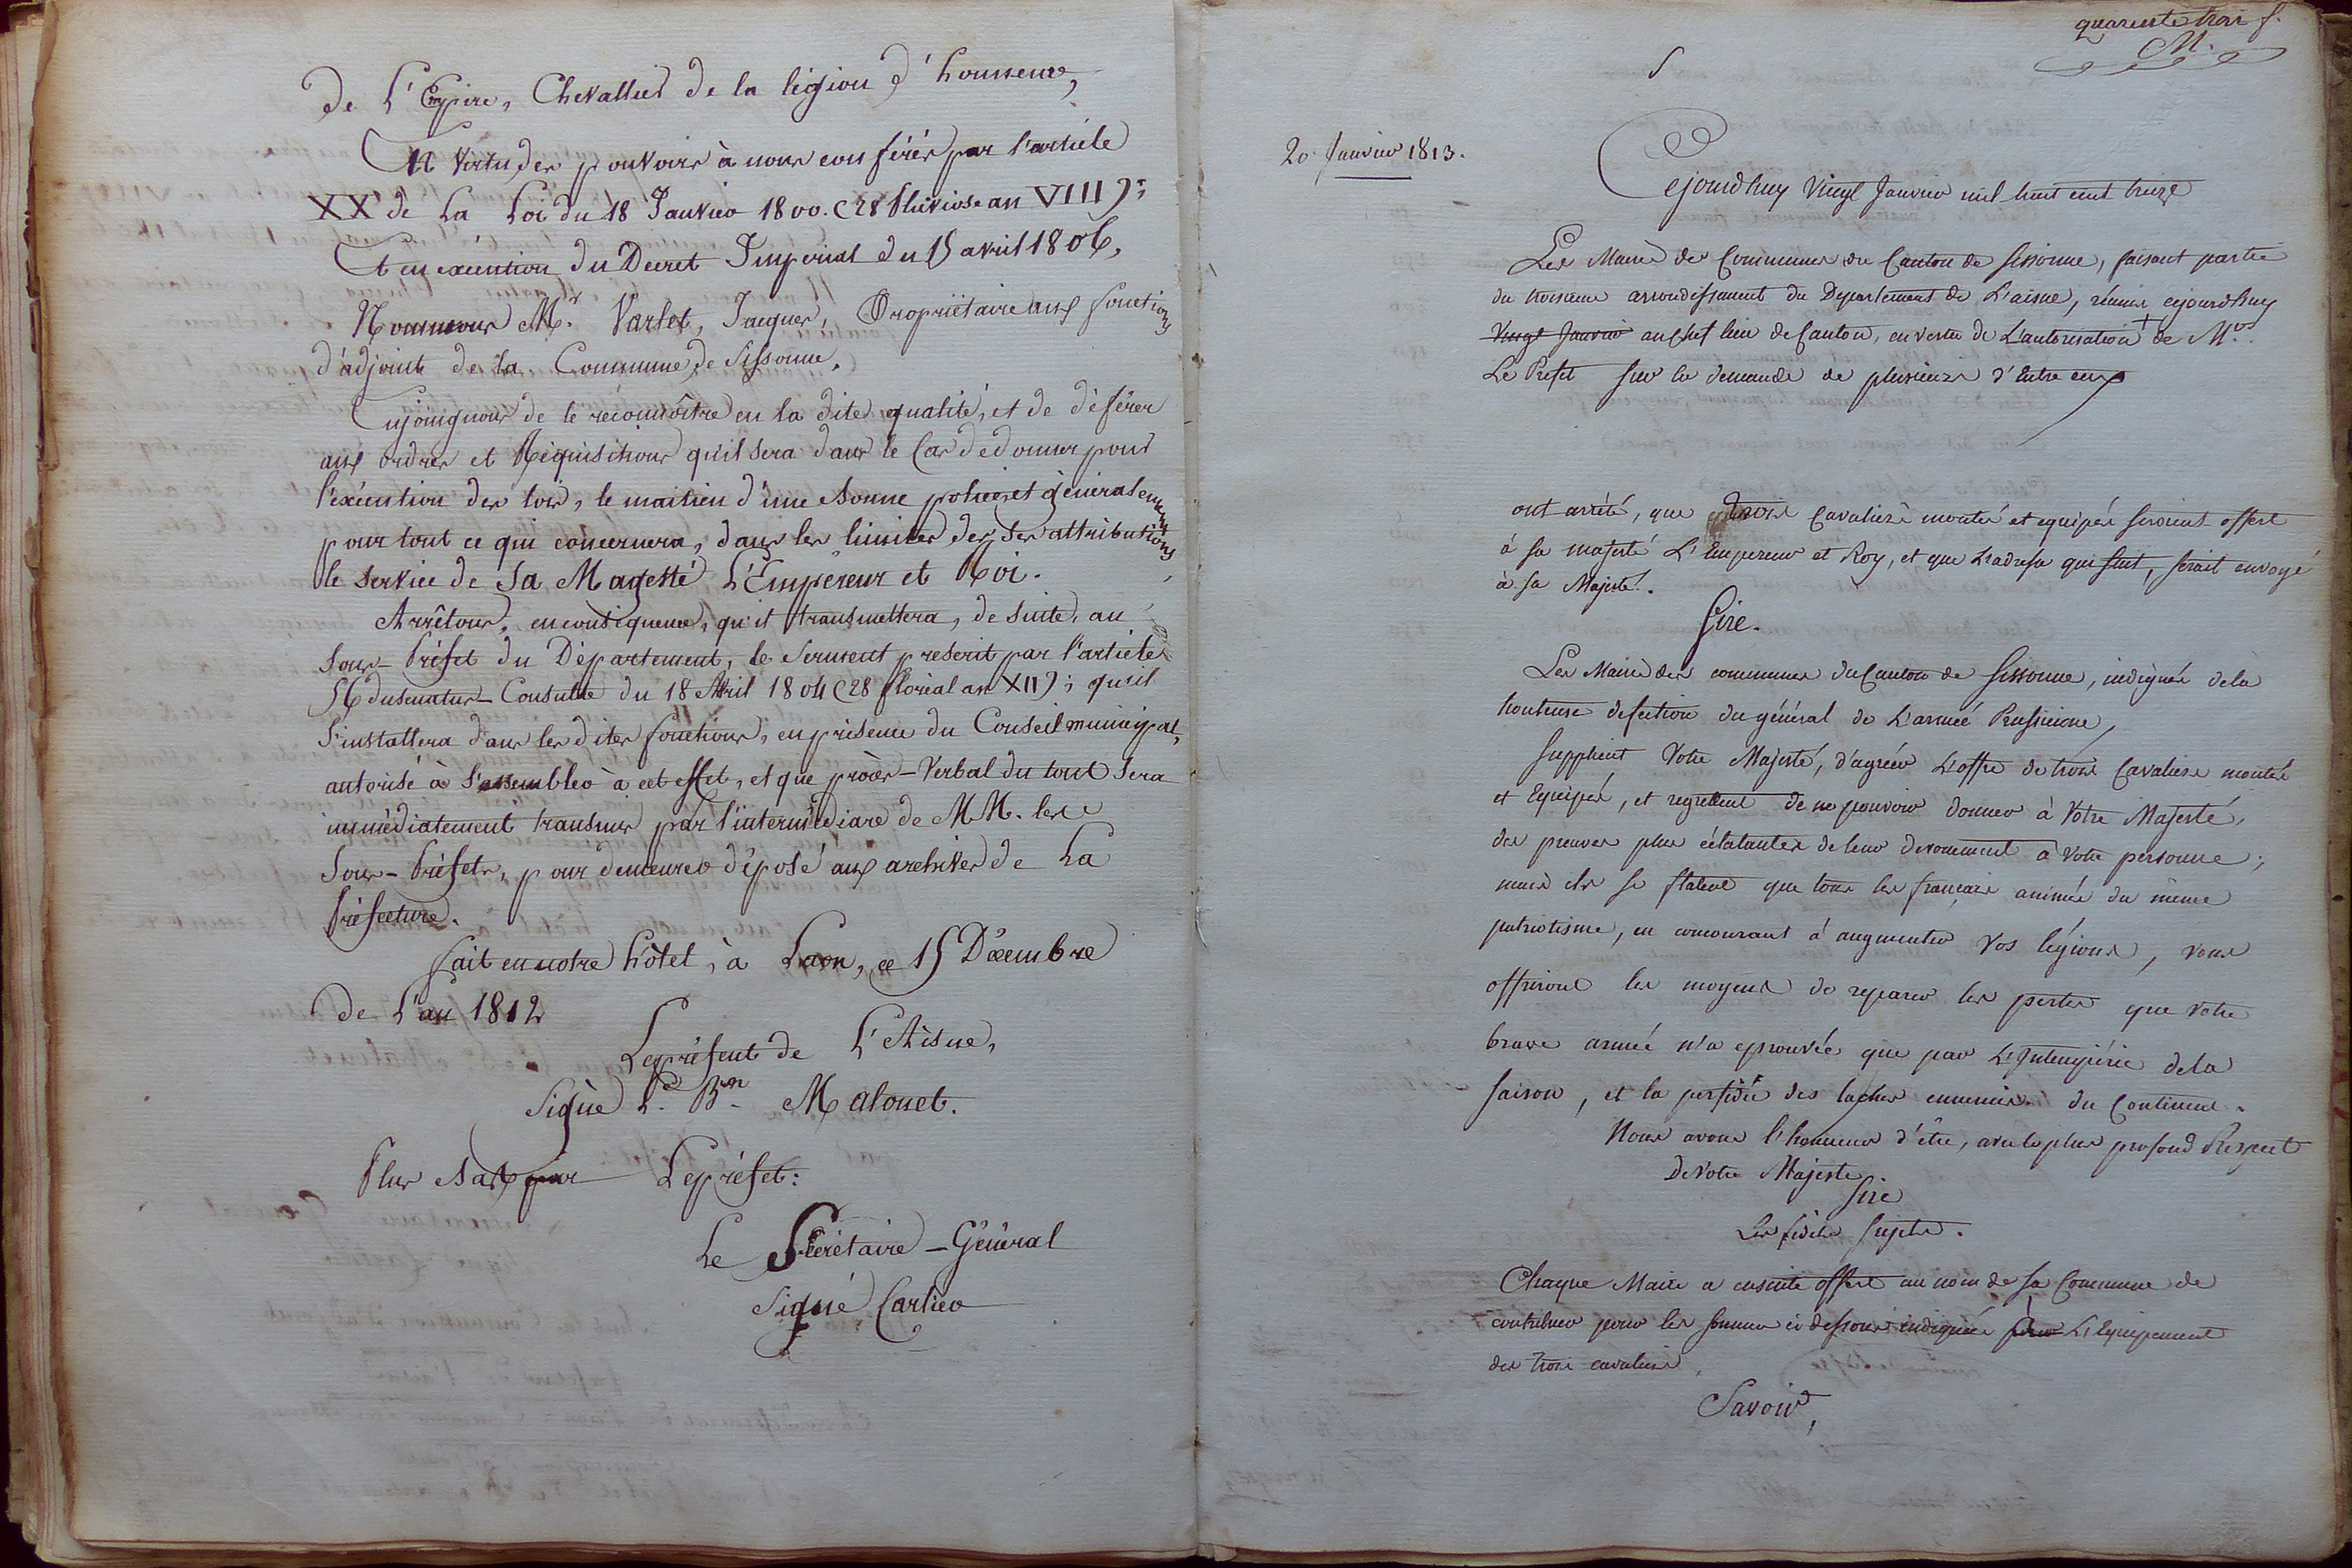 de L'Empire, Chevallier de la légion d'honneur,
En Vertu des pouvoirs à nous conférés par l'article
XX de La Loi du 18 Janvier 1800. (28 Pluviose an VIII);
Et en exécution du Decret Imperial du 15 avril 1806,
Nommons Mr. Varlet, Jacques, Propriétaire aux fonctions
d'adjoint de la Commune de Sissonne.
Enjoignons de le reconnôitre en la dite qualité, et de déférer
aux ordres et Réquisitions qu'il sera dans le Cas de donner pour
l'exécution des lois, le maitien d'une bonne police et généralement
pour tout ce qui concernera, dans les limites de ses attributions,
le service de Sa Magesté L'Empereur et Roi.
Arrêtons, en conséquence, qu'il transmettera, de suite, au
Sous-Préfet du Département, le Serment prescrit par l'article
56 du senatus-Consulte du 18 Avril 1804 (28 floréal an XII); qu'il
S'installera dans les dites fonctions, en présence du Conseil municipal,
autorisé à S'assembler à cet effet, et que procès-Verbal du tout Sera
immédiatement transmis par l'intermédiare de MM. les
Sous-Préfets, pour demeurer déposé aux archives de La
Préfecture.
fait en notre hôtel, à Laon, ce 15 Décembre
de L'an 1812
Le préfent de L'Aisne,
Signé Le. Bon Malouet.
Plus bas par Le préfet:
Le Secrétaire-Général
Signé Carlier
quarente trois f.
M.
20 Janvier 1813.
Cejourdhuy Vingt Janvier mil huit cent treize
Les Maires des Communes du Canton de Sissonne, faisant partie
du troisieme arrondissement du Departement de L'aisne, réunis cejourdhuy
Vingt Janvier au Chef lieu de Canton, en vertu de L'autorisation de Mr.
Le Prefet sur la demande de plusieurs d'Entre eux
ont arrêté, que trois Cavaliers montés et equipés seroient offert
à sa majesté L'Empereur et Roy, et que L'adresse qui suit, serait envoyé
à sa Majesté.
Sire.
Les Maires des communes du Canton de Sissonne, indignés de la
honteuse defection du général de L'armée Prussienne,
Supplient Votre Majesté, d'agréer L'offre de trois Cavaliers montés
et Equipés, et regrettent de ne pouvoir donner à Votre Majesté,
des preuves plus éclatantes de leur devouement à Votre personne;
mais ils se flatent que tous les français animés du même
patriotisme, en concourant à augmenter Vos légions, vous
offriront les moyens de reparer les pertes que Votre
brave armée n'a eprouvées que par L'Intempérie de la
saison, et la perfidie des laches ennemis du Continent.
Nous avons l'honneur d'être, avec le plus profond Respect
De Votre Majesté
Sire
Les fidèles Sujets.
Chaque Maire a ensuite offert au nom de sa Commune de
contribuer pour les sommes ci dessous indiquées pour L'Equipement
des trois cavaliers
Savoir,